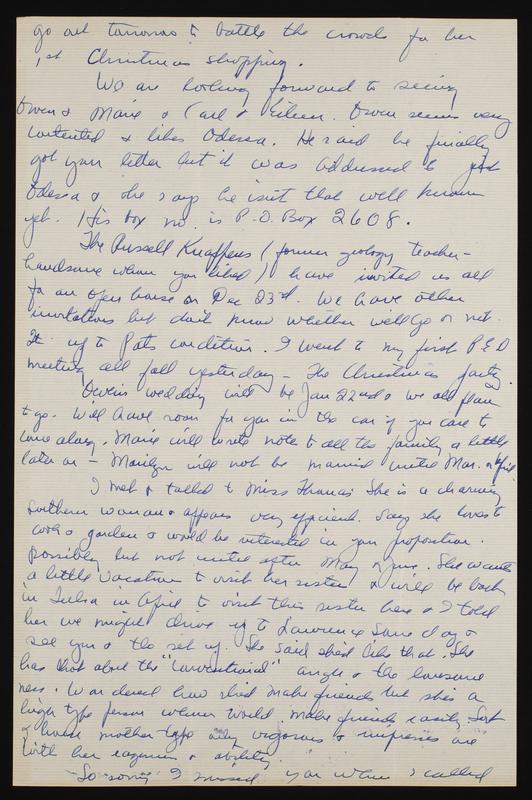 go out tomorrow to battle the crowds for her
1st Christmas shopping.
We are looking forward to seeing
Owen & Marie & Carl & Eileen. Owen seems very
contented & likes Odessa. He said he finally
got your letter but it was addressed to just
Odessa & she says he isn't that well known
yet. His box no. is P.O. Box 2608.
The Russell Knappens (former geology teacher -
handsome whom you liked) have invited us all
for an open house on Dec 23rd. We have other
invitations but don't know whether we'll go or not.
It up to Pats condition. I went to my first P.E.O
meeting all fall yesterday - the Christmas party.
Owens wedding will be Jan 22nd & we all plan
to go. Will have room for you in the car if you care to
come along. Marie will write note to all the family a little
later on - Marilyn will not be married until Mar. or April
I met & talked to Miss Thomas. She is a charming
Southern woman & appears very efficient. Says she loves to
cook & garden & would be interested in your proposition.
Possibly but not until after May or June. She wants
a little vacation to visit her sister & will be back
in Tulsa in April to visit this sister here & I told
her we might drive up to Lawrence some day &
see you & the set up. She said she'd like that. She
has that about the "conventional" angle & the lonesome
ness. Wondered how she'd make friends but she's a
large type person whom would make friends easily. Sort
of house mother type only vigorous & impresses one
with her eagerness & ability.
So sorry I missed you when I called